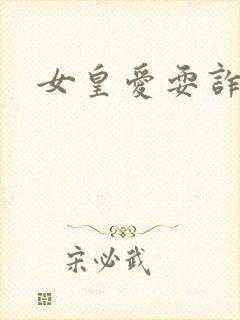 女皇愛耍詐
宋必武